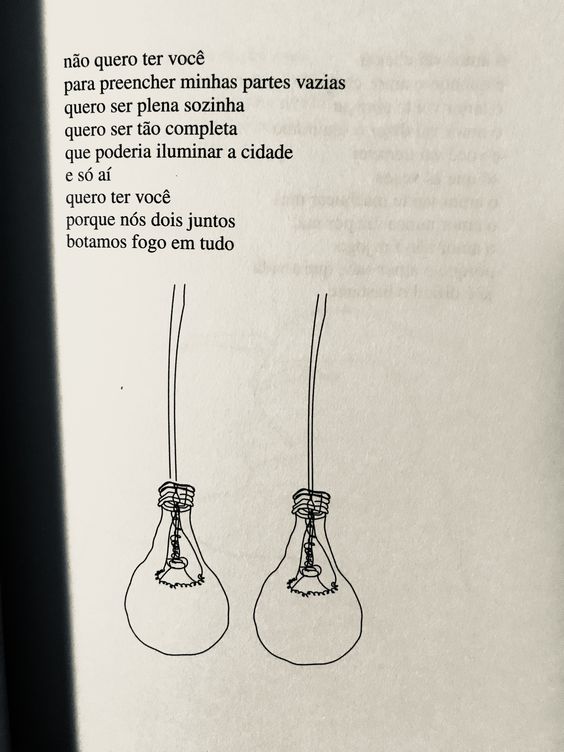 não quero ter você
para preencher minhas partes vazias
quero ser plena sozinha
quero ser tão completa
que poderia iluminar a cidade
e só aí
quero ter você
porque nós dois juntos
botamos fogo em tudo